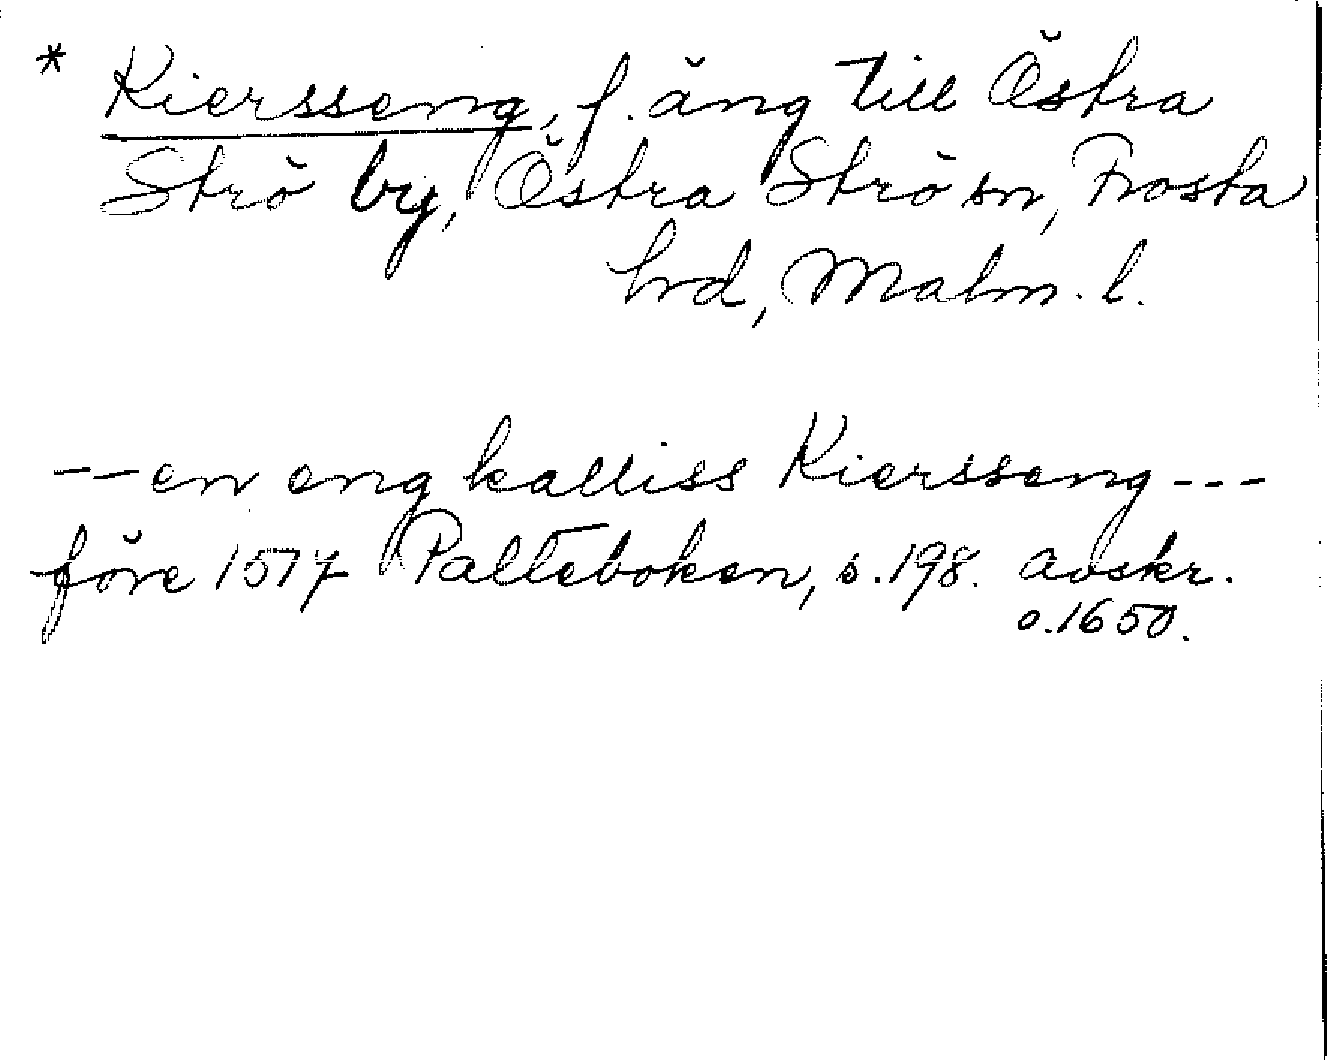 * Kiersseng, f. äng till Östra
Strö by, Östra Strö sn, Frosta
hrd, Malm. l.
-- en eng kalliss Kiersseng ---
före 1577 Palteboken, s. 198. avskr.
o. 1650.